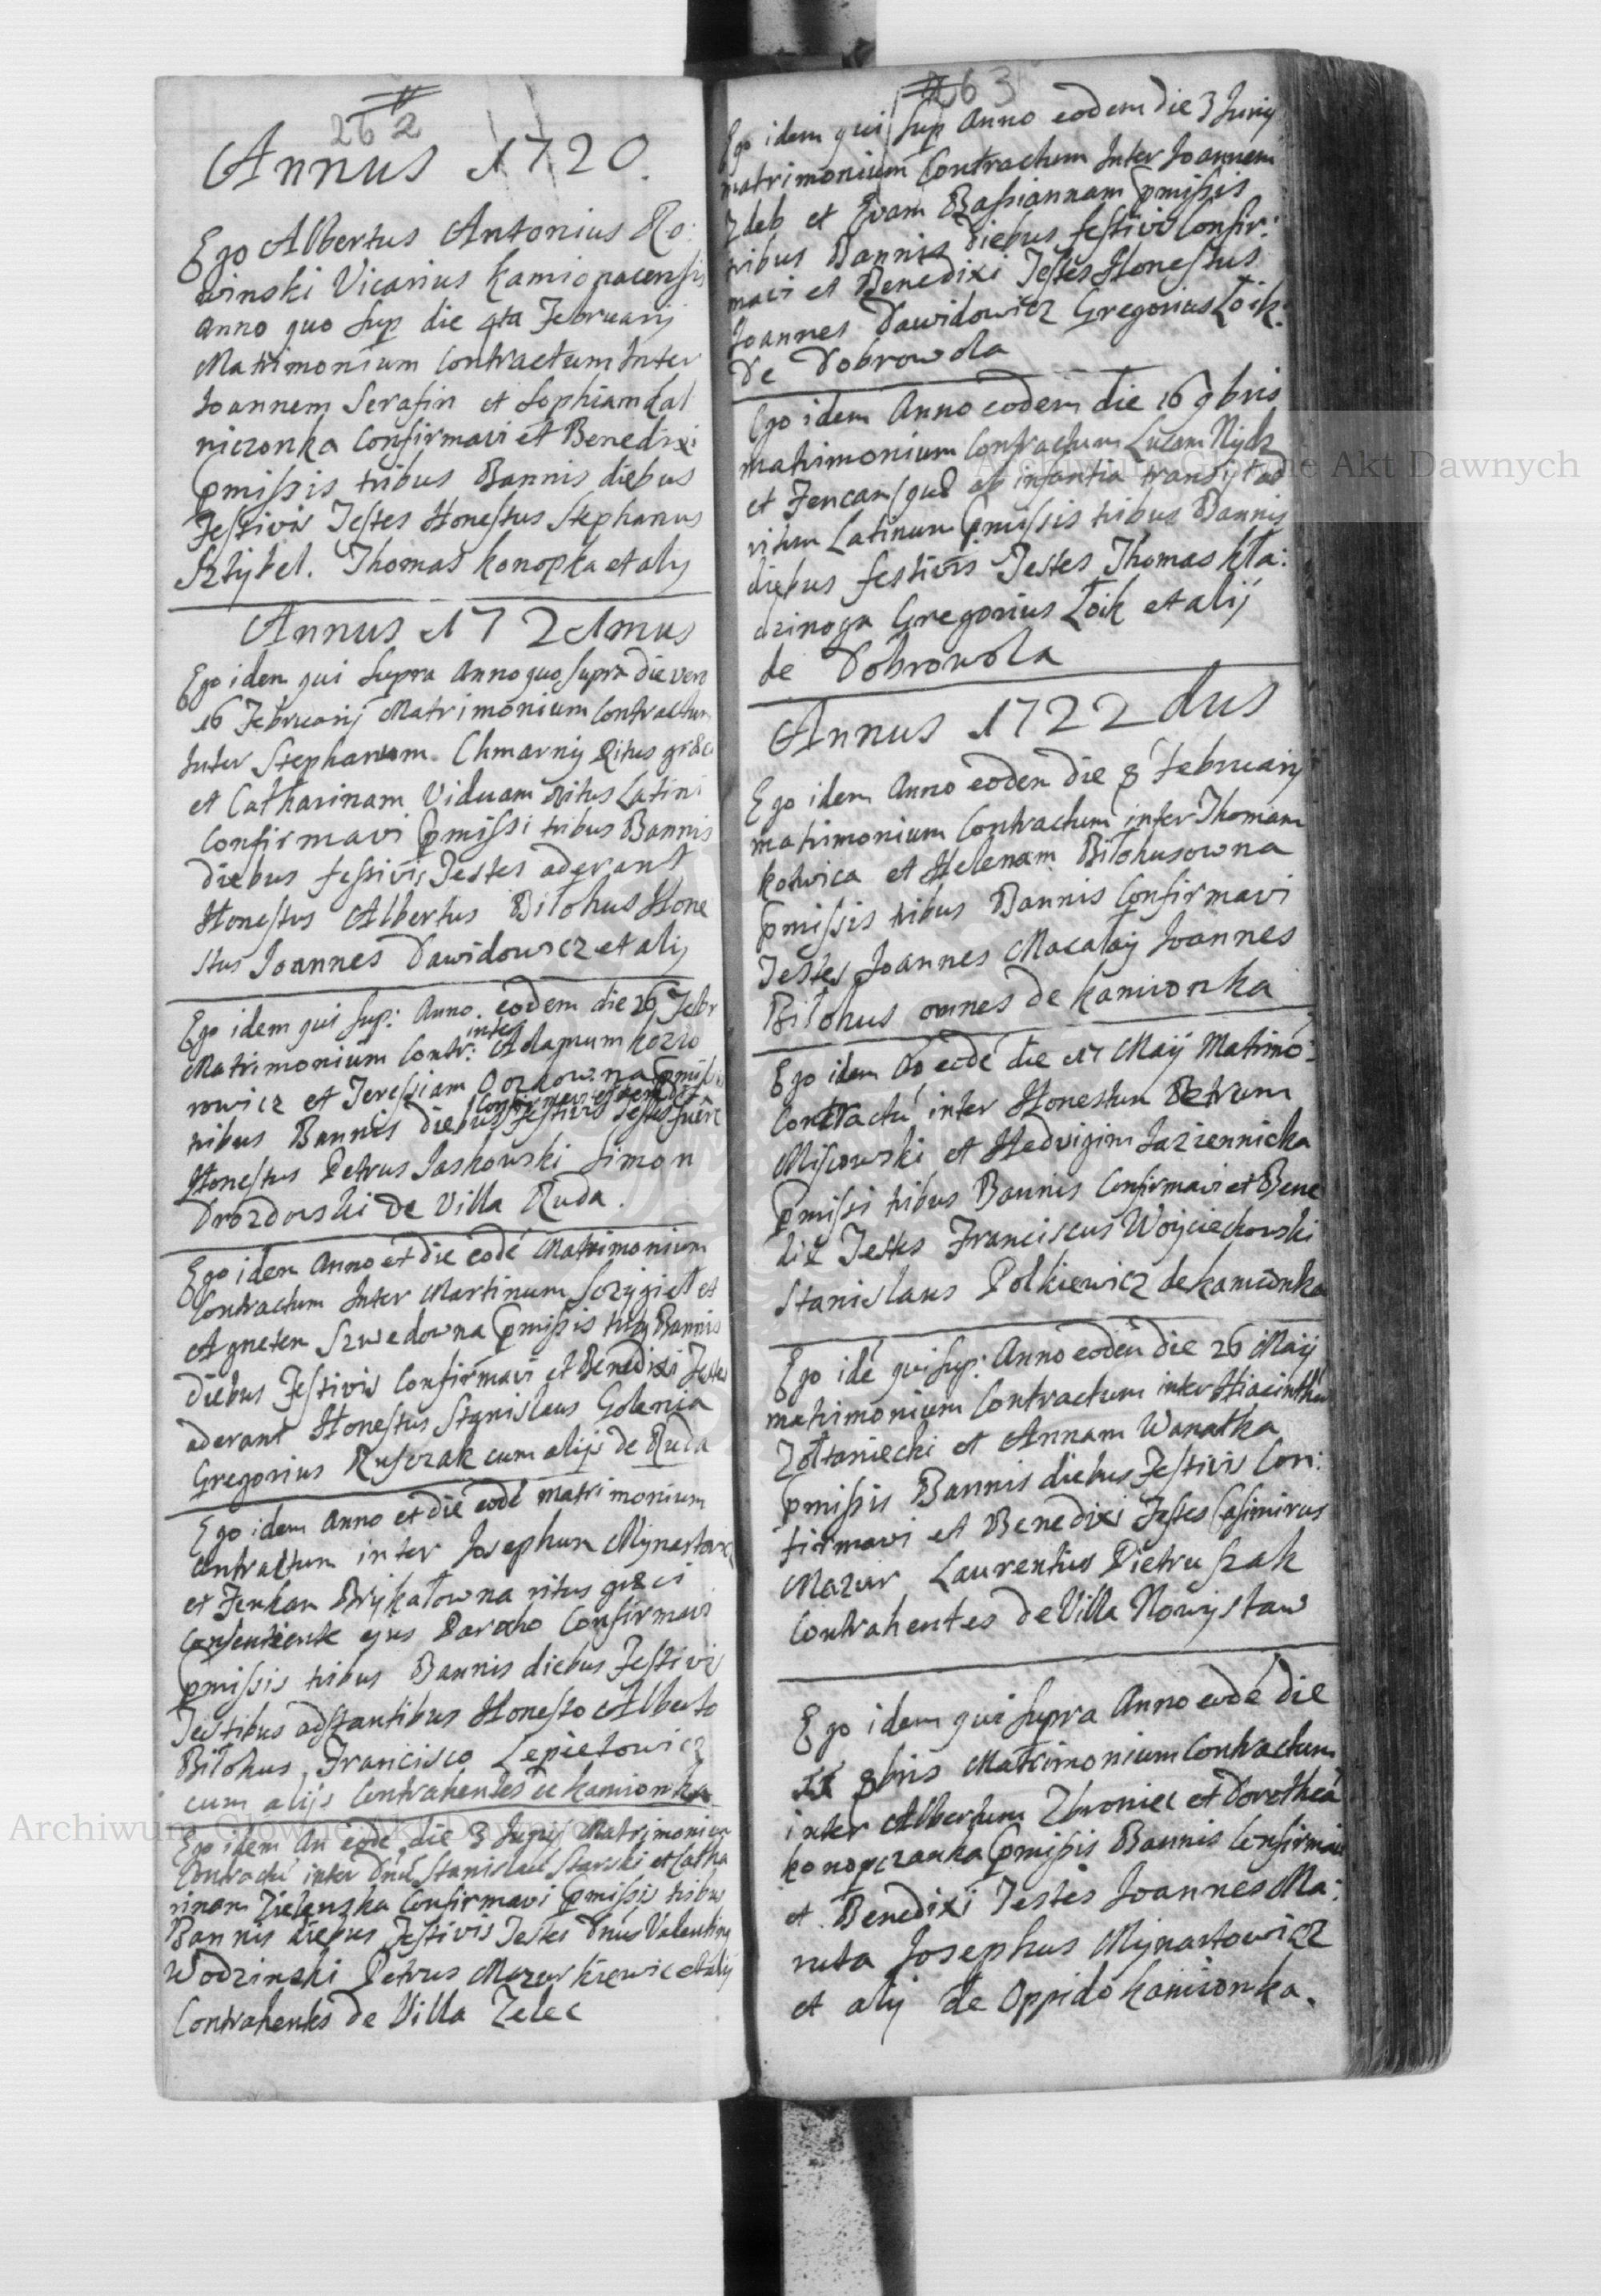 262
Annus 1720.
Ego Albertus Antonius Ro:
winski Vicarius Kamionacensis
Anno quo sup die 4ta Februarij
Matrimonium Contractum Inter
Joannem Serafin et Sophiam Lal
niczonka Confirmavi et Benedixi
pmissis tribus Bannis diebus
Festivis Testes Honestus Stephanus
Sztybel. Thomas Konopka et alij
Annus 1721mus
Ego idem qui Supra Anno quo supra die vero
16 Februarij Matrimonium Contractum
Inter Stephanum Chmarny Ritus græci
et Catharinam Viduam ritus Latini
Confirmavi pmissi tribus Bannis
diebus festivis Testes aderant
Honestus Albertus Biłohus Hone
stus Joannes Dawidowicz et alij
Ego idem qui sup: Anno eodem die 26 Febr
Matrimonium Contr: inter Adamum Kozio
rowicz et Teressiam pmissis
tribus Bannis diebus Festivis Confirmavi et Testes fuere
Honestus Petrus Jaskowski Simon
Drozdoski de Villa Ruda.
Ego idem Anno et die eodé Matrimonium
Contractum Inter Martinum Sczygieł et
Agnetem Szwedowna pmissis tribus Bannis
diebus Festivis Confirmavi et Benedixi Testes
aderant Honestus Stanislaus Golenia
Gregorius Rusczak cum alijs de Ruda
Ego idem Anno et die eodé matrimonium
contractum inter Josephum Mynartowicz
et Fenkam Prykałowna ritus græci
Consentiente ejus Parocho Confirmavi
pmissis tribus Bannis diebus Festivis
Testibus adstantibus Honesto Alberto
Biłohus, Francisco Lepietowicz
cum alijs Contrahentes de Kamionka
Ego idem An eodé die 3 Junij Matrimonium
Contractú inter Dnú Stanislaú Starski et Catha
rinam Zielenska Confirmavi pmissis tribus
Bannis diebus Festivis Testes Dnus Valentinus
Wodzinski Petrus Mazurkiewic et alij
Contrahentes de Villa Zelec
263
Ego idem qui sup Anno eodem die 3 Junij
matrimonium Contractum Inter Joannem
Zdeb et Evam Bassiannam pmissis
tribus Bannis diebus festivis Confir:
mavi et Benedixi Testes Honestus
Joannes Dawidowicz Gregorius Łoik:
De Dobrowola
Ego idem Anno eodem die 16 9bris
matrimonium Contractum Lucam Nydz
et Fencam quæ ab infantia transijt ad
ritum Latinum pmissis tribus Bannis
diebus festivis Testes Thomas Kła:
dzinoga Gregorius Łoik et alij
de Dobrowola
Annus 1722dus
Ego idem Anno eodem die 8 Februarij
matrimonium Contractum inter Thomam
Kotwica et Helenam Biłohusowna
pmissis tribus Bannis Confirmavi
Testes Joannes Macałay Joannes
Biłohus omnes de Kamionka
Ego idem Aó eodé die 17 Maij Matrimó:
Contractú inter Honestum Petrum
Misowski et Hedvigim Łaziennicka
pmissi tribus Bannis Confirmavi et Bene
dix Testes Franciscus Woyciechowski
Stanislaus Polkiewicz de Kamionka
Ego idé qui sup: Anno eodem die 26 Maij
matrimonium Contractum inter Hiacinthum
Zołtaniecki et Annam Wanatka
pmissis Bannis diebus Festivis Con:
firmavi et Benedixi Testes Casimirus
Mazur Laurentius Pietruszak
Contrahentes de Villa Nowystaw
Ego idem qui supra Anno eodé die
8bris Matrimonium Contractum
inter Albertum Zbroniec et Dorotheá
Konopczanka pmissis Bannis Confirmavi
et Benedixi Testes Joannes Ma:
ruta Josephus Mynartowicz
et alij de Oppido Kamionka.
Archiwum Główne Akt Dawnych
Archiwum Główne Akt Dawnych